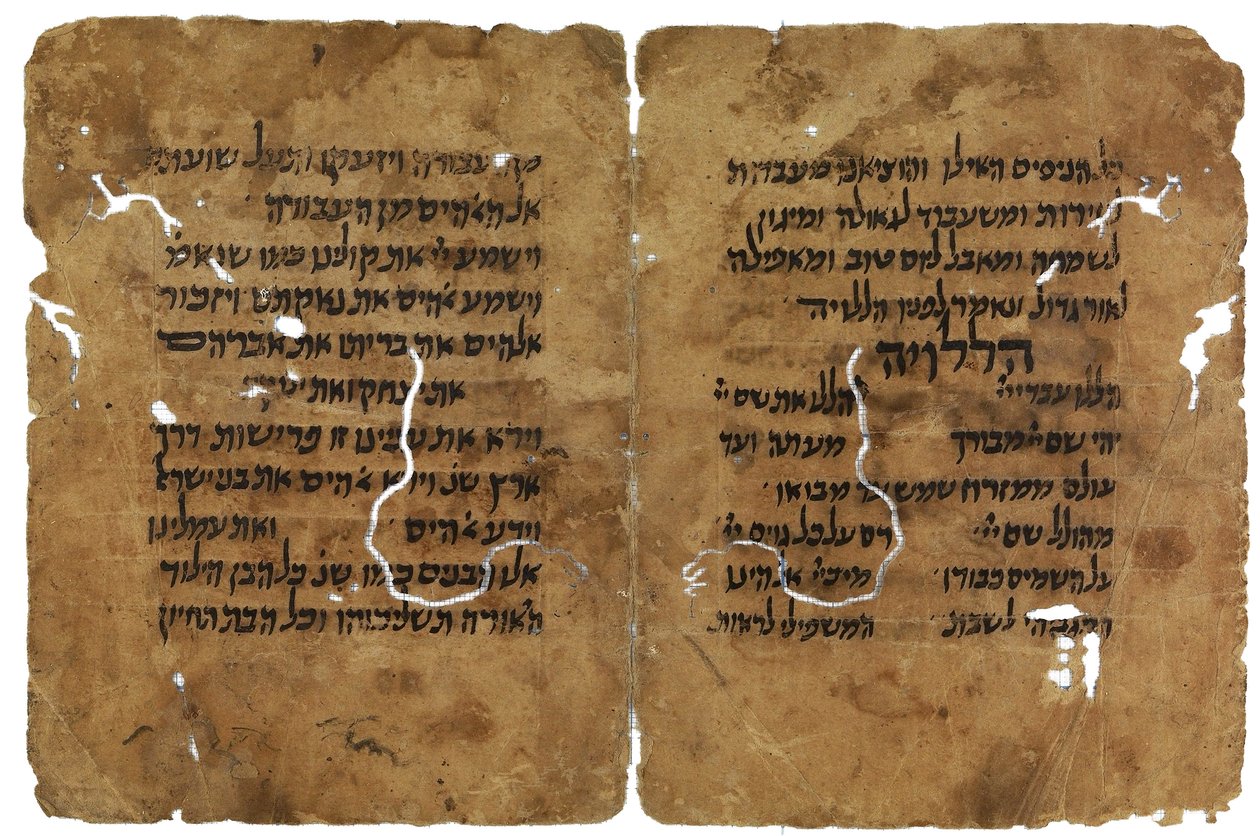 כל הניסים האילו והוציאנו מעבדות
לחירות ומשעבוד לגאולה ומיגון
לשמחה ומאבל ליום טוב ומאפילה
לאור גדול ונאמר לפניו הללויה
הללויה
הללו עבדי ייי הללו את שם ייי
יהי שם ייי מבורך מעתה ועד
עולם ממזרח שמש עד מבואו
מהולל שם ייי רם על כל גוים ייי
על השמים כבודו מי כייי אלהינו
המגביהי לשבת המשפילי לראות
מן העבודה ויזעקו ותעל שועתם
אל האלהים מן העבודה
וישמע ייי את קולינו כמו שנאמ
וישמע אלהים את נאקתם ויזכור
אלהים את בריתו את אברהם
את יצחק ואת
וירא את עניינו זו פרישות דרך
ארץ שנ וירא אלהים את בני ישראל
וידע אלהים ואת עמלינו
אלו הבנים כמו שנ כל הבן הילוד
היאורה תשליכוהו וכל הבת תחיון